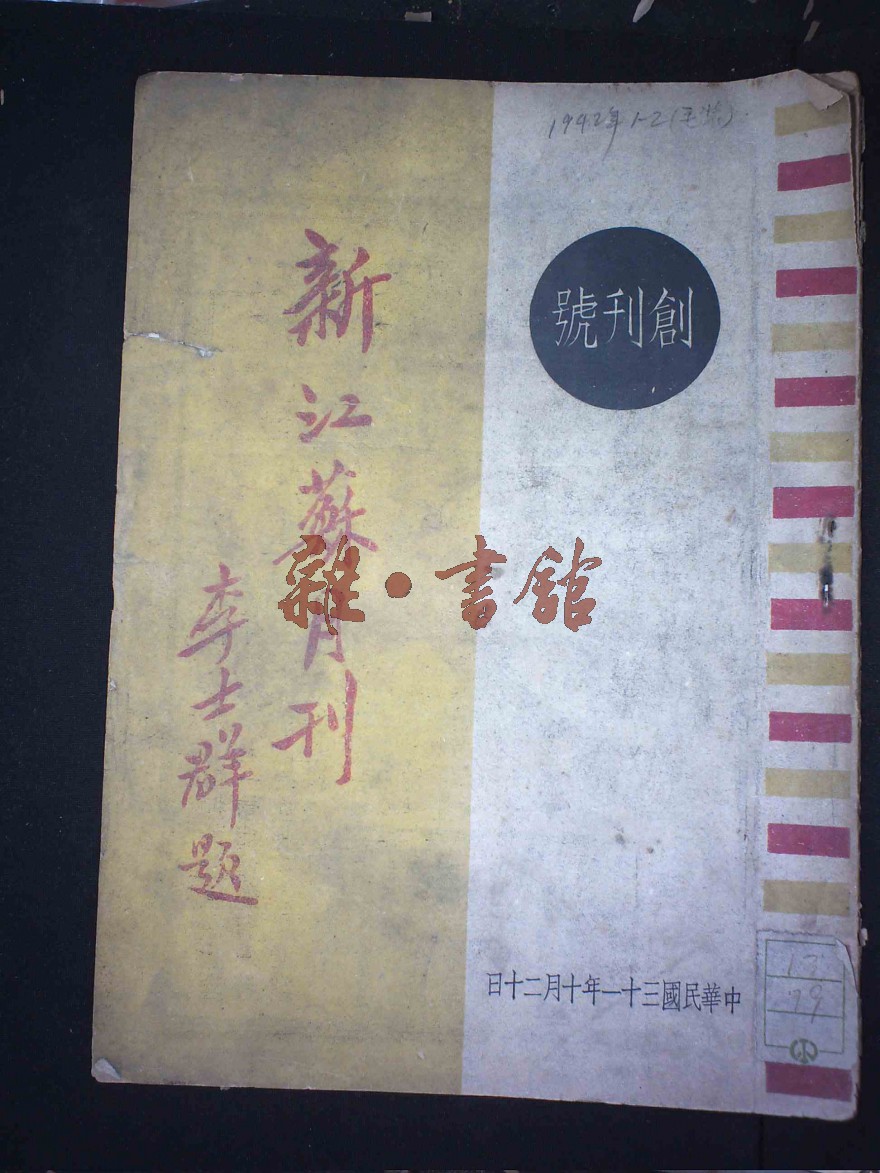 1942年1-2(毛裝)
創刊號
新江蘇月刊
李士群題
雜·書館
中華民國三十一年十月二十日
13
79